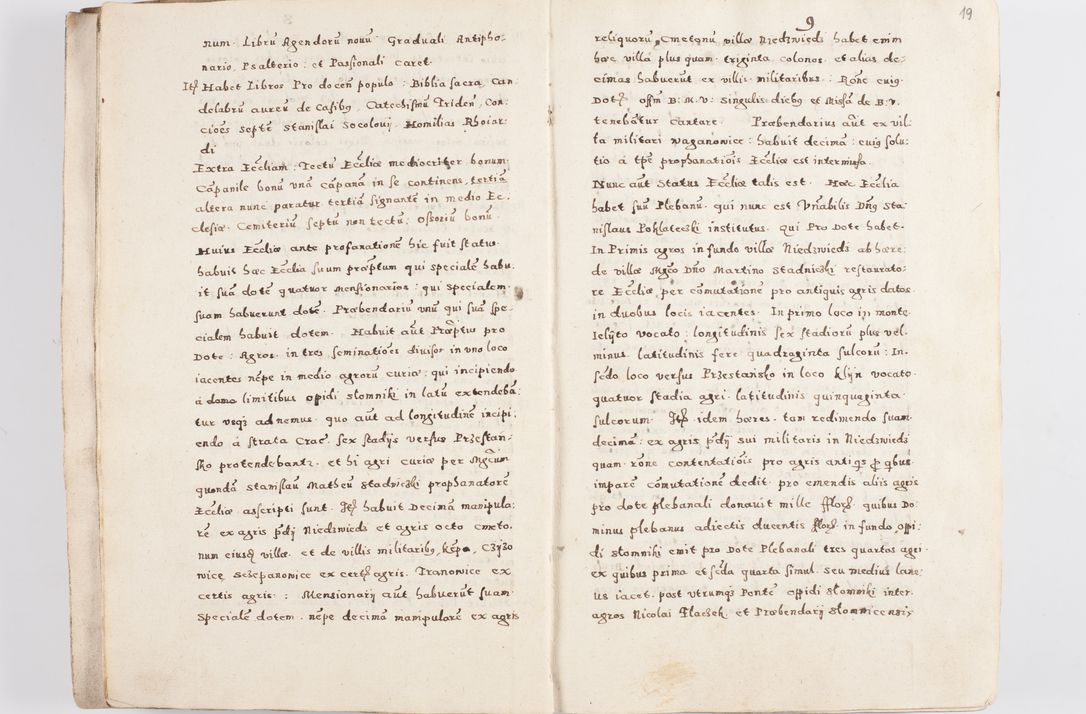 num. Librũ Agendorũ nouũ Graduali Antipho:
nario, Psalterio: et Passionali caret.
Itẽ Habet Libros Pro docen̄ populo: Biblia sacra, Can
delabrũ aureũ de Casibꝰ, Catechismũ Triden̄, Con:
cioēs septē Stanislai Socolouij. Homilias Rhoiar:
di
Extra Eccliam: Tectũ Eccliæ mediocriter bonum.
Cāpanile bonũ vnā cāpanā in se continens, tertiā
altera nunc paratur, tertiā signantē in medio Ec.
clesiæ. Cemiteriũ septũ non tectũ; Ossoriũ bonũ.
Huius Eccliæ ante profanationē hic fuit status.
habuit hæc Ecclia suum præptum qui specialē habu:
it suā dotē quatuor mensionarios: qui specialem.
suam habuerunt dotē. Præbendariũ vnũ qui suā spe:
cialem habuit dotem. Habuit aũt Præptus pro
Dote: Agros. in tres seminatioēs diuisos in vno loco
iacentes nēpe in medio agrorũ curiæ: qui incipiendo
à domo limitibus opidi Slomniki in latũ extendebā:
tur vsqꝫ ad nemus. quo aũt ad longitudinē incipi:
endo á strata Crac. sex stadijs versus Przestan:
sko protendebantr. et hi agri curiæ per Mgcũm
quondā Stanislaũ Matheũ Stadnicski prophanatorē
Eccliæ asscripti sunt. Itẽ habuit Decimā manipula:
rē ex agris p̄dij Niedzwieds et agris octo cmeto,
num eiusdē villæ. et de villis militaribꝰ, Kēpa, Czijzo
wice, Sczepanowice ex certis agris. Tranowice ex
certis agris.: Mensionarij aũt habuerũt suam.
Specialē dotem. nēpe decimā manipularē ex agris
9
19
reliquorũ Cmetonũ villæ Niedzwieds habet enim
hæc villa plus quam. triginta colonos. et alias de:
cimas habuerũt ex villis militaribus: Rōne cuiꝰ
Dotis offm B: M: V: singulis diebꝰ et Missā de B: V.
tenebātur cantare. Præbendarius aũt ex vil:
la militari Waganowice: habuit decimā: cuiꝰ solu:
tio à tp̄e prophanatiōis Eccliæ est intermissa.
Nunc aũt Status Eccliæ talis est. Hæc Ecclia
habet suũ Plebanũ. qui nunc est Vn̄abilis Dn̄s Sta:
nislaus Poklateczki institutus. qui Pro Dote habet.
In Primis agros in fundo villæ Niedzwieds ab hære:
de villæ Mgcō Dn̄o Martino Stadnicski restaurato:
re Eccliæ per cōmutationē pro antiquis agris datos.
in duobus locis iacentes. In primo loco in monte.
Ielijto vocato: longitudinis sex stadiorũ plus vel.
minus latitudinis fere quadraginta sulcorũ: In.
secdo loco versus Przestańsko in loco klijn vocato.
quatuor stadia agri. latitudinis quinquaginta.
sulcorum. Itẽ idem hæres. tam redimendo suam.
decimā: ex agris p̄dij sui militaris in Niedzwieds
quam. rōne contentatiōis pro agris antiqs pro qbus.
imparē cōmutationē dedit. pro emendis aliis agris
pro dote plebanali donauit mille fflorꝫ. quibus Do:
minus plebanus adiectis ducentis fflorꝫ in fundo oppi:
di Slomniki emit pro Dote Plebanali tres quartas agri.
ex quibus prima et secda quarta simul. seu medius lane:
us iacet. post vtrumqꝫ Pontē opidi Slomniki inter.
agros Nicolai Flaczek, et Præbendarij Slomnicensis